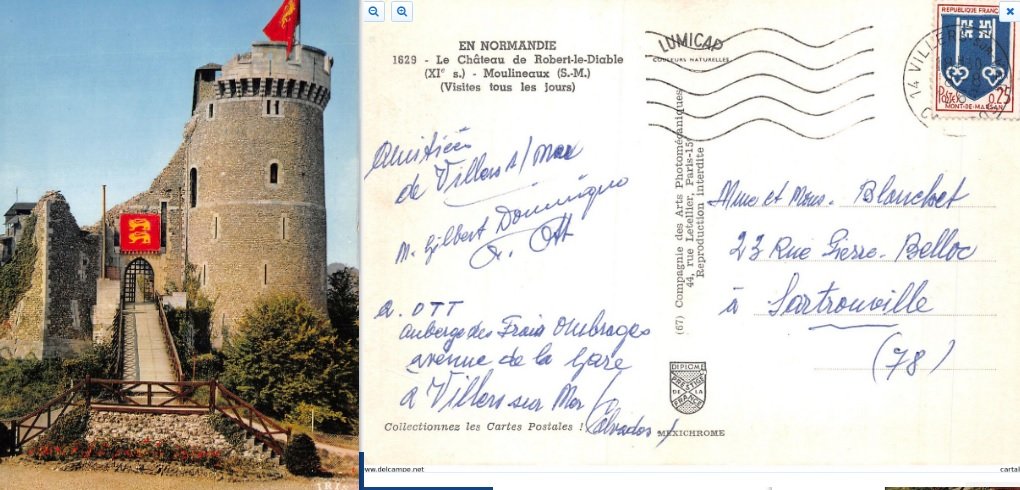 187
EN NORMANDIE
1629 - Le Château de Robert-le-Diable
(XIe s.) - Moulineaux (S.-M.)
(Visites tous les jours)
LUMICAP
COULEURS NATURELLES
REPUBLIQUE FRANÇAISE
Postes 0,25
MONT-DE-MARSAN
14 VILLERS SUR MER
Amitiés
de Villers s/mer
M. Gilbert Dominique
A. Ott
A. OTT
auberge des Frais Ombrages
avenue de la Gare
à Villers sur Mer
(Calvados)
Collectionnez les Cartes Postales !
(67) Compagnie des Arts Photomécaniques
44, rue Letellier, Paris-15e
Reproduction interdite
DIPLOME
PRESTIGE
DE LA
FRANCE
MEXICHROME
Mme et Mons. Blanchet
23 Rue Pierre-Belloc
à Sartrouville
(78)
www.delcampe.net
cartal